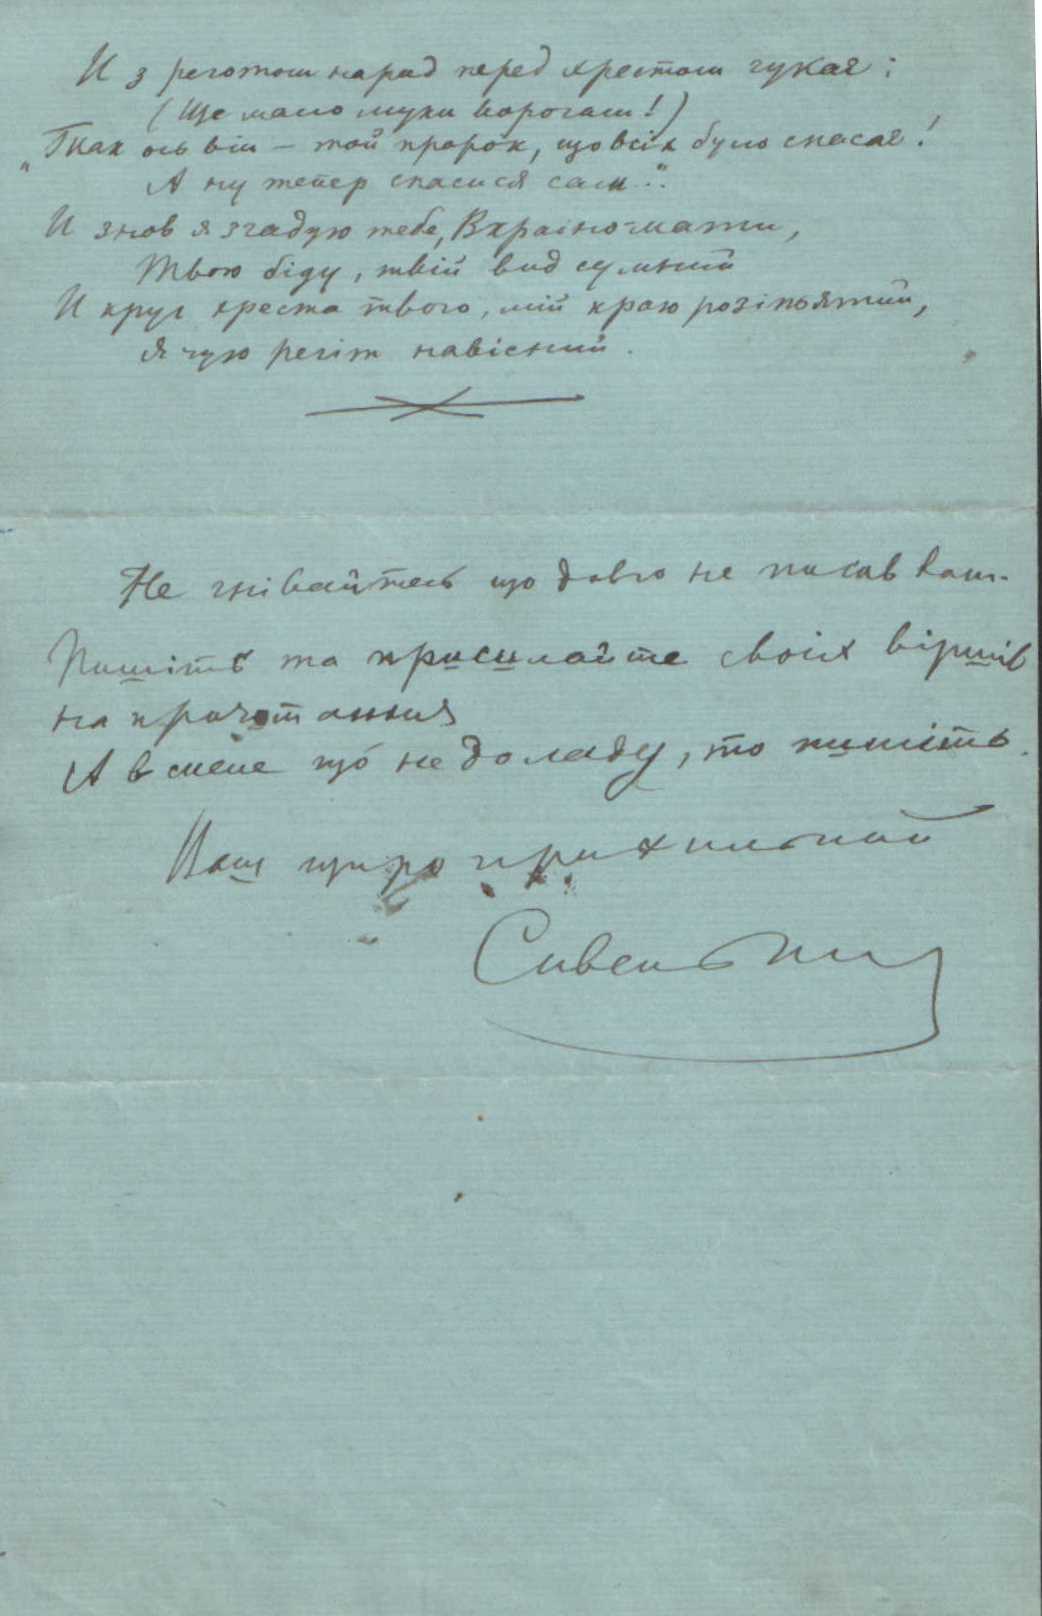 И з реготом нарид перед хрестом гукає:
(Ще мало муки ворогам!)
"Так ось він — той пророк, що всіх було спасає!
А ну тепер спасися сам."
И знов я згадую тебе, Вкраіно-мати,
Твою біду, твій вид сумний
И круг хреста твого, мій краю розіпьятий,
Я чую регіт навісний.
Не гнівайтесь що довго не писав вам.
Пишіть та присилайте своіх віршів
на прочитання
А в мене що не доладу, то пишіть.
Ваш щиро прихильный